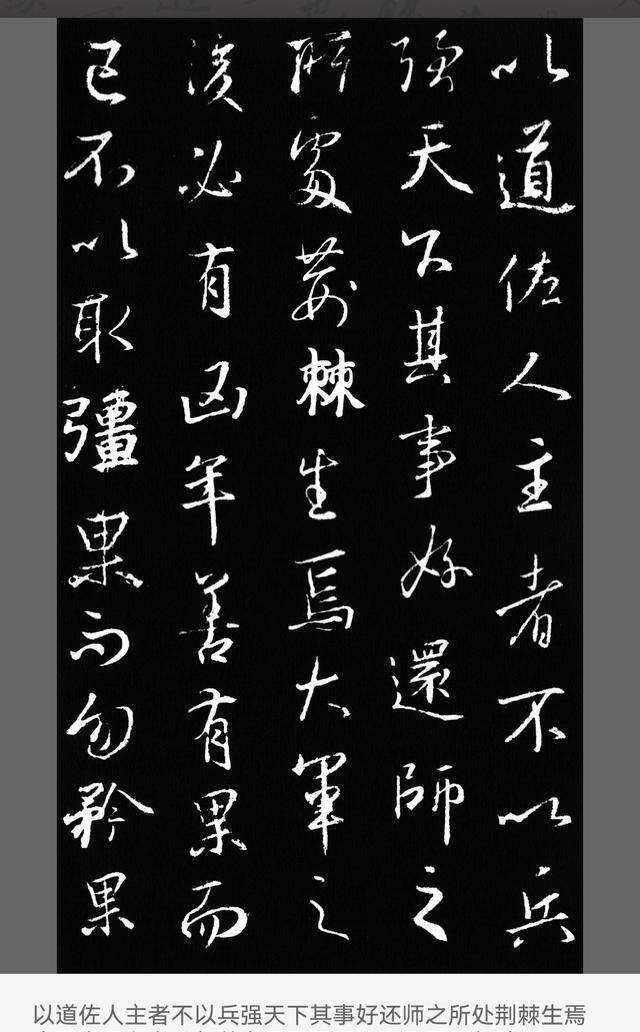 以道佐人主者不以兵
强天下其事好還師之
所處荊棘生焉大軍之
後必有凶年善有果而
已不以取彊果而勿矜果
以道佐人主者不以兵强天下其事好还师之所处荆棘生焉